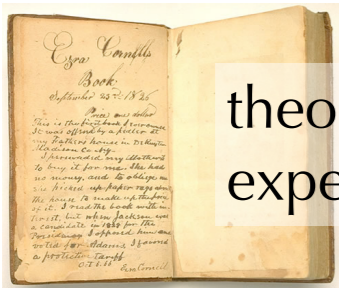 Ezra Cornell's
Book
September 23rd 1826
Price one dollar
This is the first book I ever owned
It was offered by a pedler at
my Father's house in DeRuyter
Madison Co. N.y.
I persuaded my Mother
to buy it for me. She had
no money, and to oblige
picked up paper rags about
the house to make up the price
of it. I read the book with in-
terest, but when Jackson was
a candidate in 1828 for the
Presidency I opposed him and
voted for Adams. I favored
a protective tariff
Ezra Cornell
theo
expe